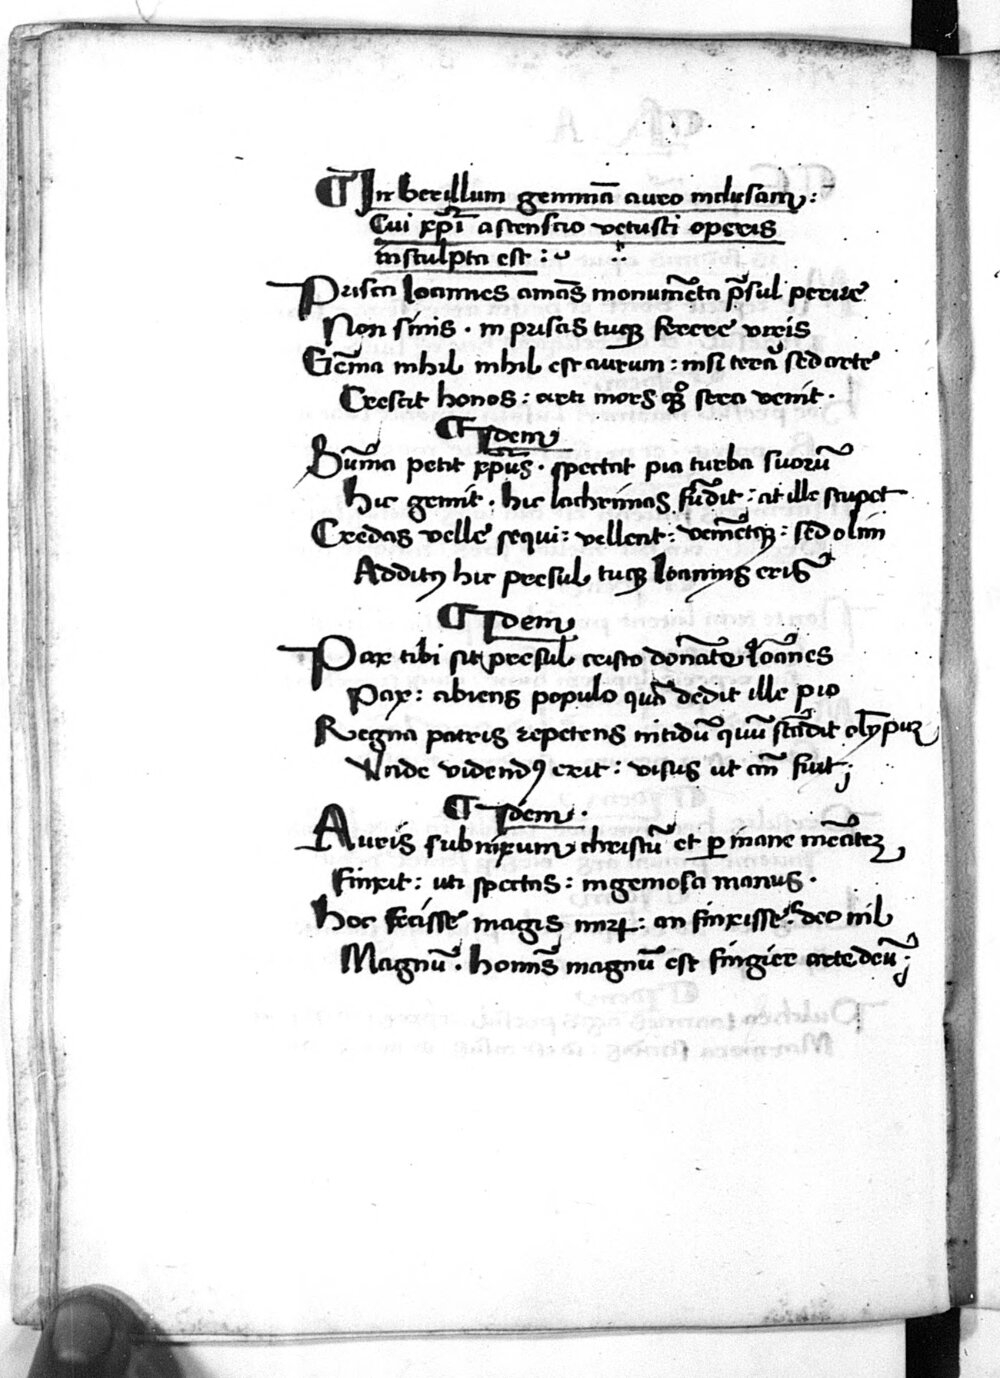 ¶ In berillum gemmā auro inclusam:
Cui xp̄i ascensio vetusti operis
insculpta est :
Prisca Ioannes amās monumēta p̄sul perire
Non sinis · in priscas tuqꝫ serere vixis
Gēma nihil nihil est aurum : nisi terā sed arte
Crescit honos : arti mors qꝫ sera venit ·
¶ Idem
Sūma petit xp̄us · spectat pia turba suorū
hic gemit · hic lachrimas fūdit : at ille stupet
Credas velle sequi : vellent : venietqꝫ : sed olim
Additꝰ hic presul tuqꝫ Ioannis eris
¶ Idem
Pax tibi sit presul cristo donāte Ioānes
Pax : abiens populo quā dedit ille pio
Regna patris repetens nitidū quū scādit olympū
Unde videndꝰ erit : visus ut ān̄ fuit ;
¶ Idem ·
Auris subnixum christū et ꝑ inane meātē ,
Finxit : uti spectas : ingeniosa manus ·
Hoc fecisse magis mirꝫ : an finxisse : deo nil
Magnū · homīs magnū est fingier arte deū ;